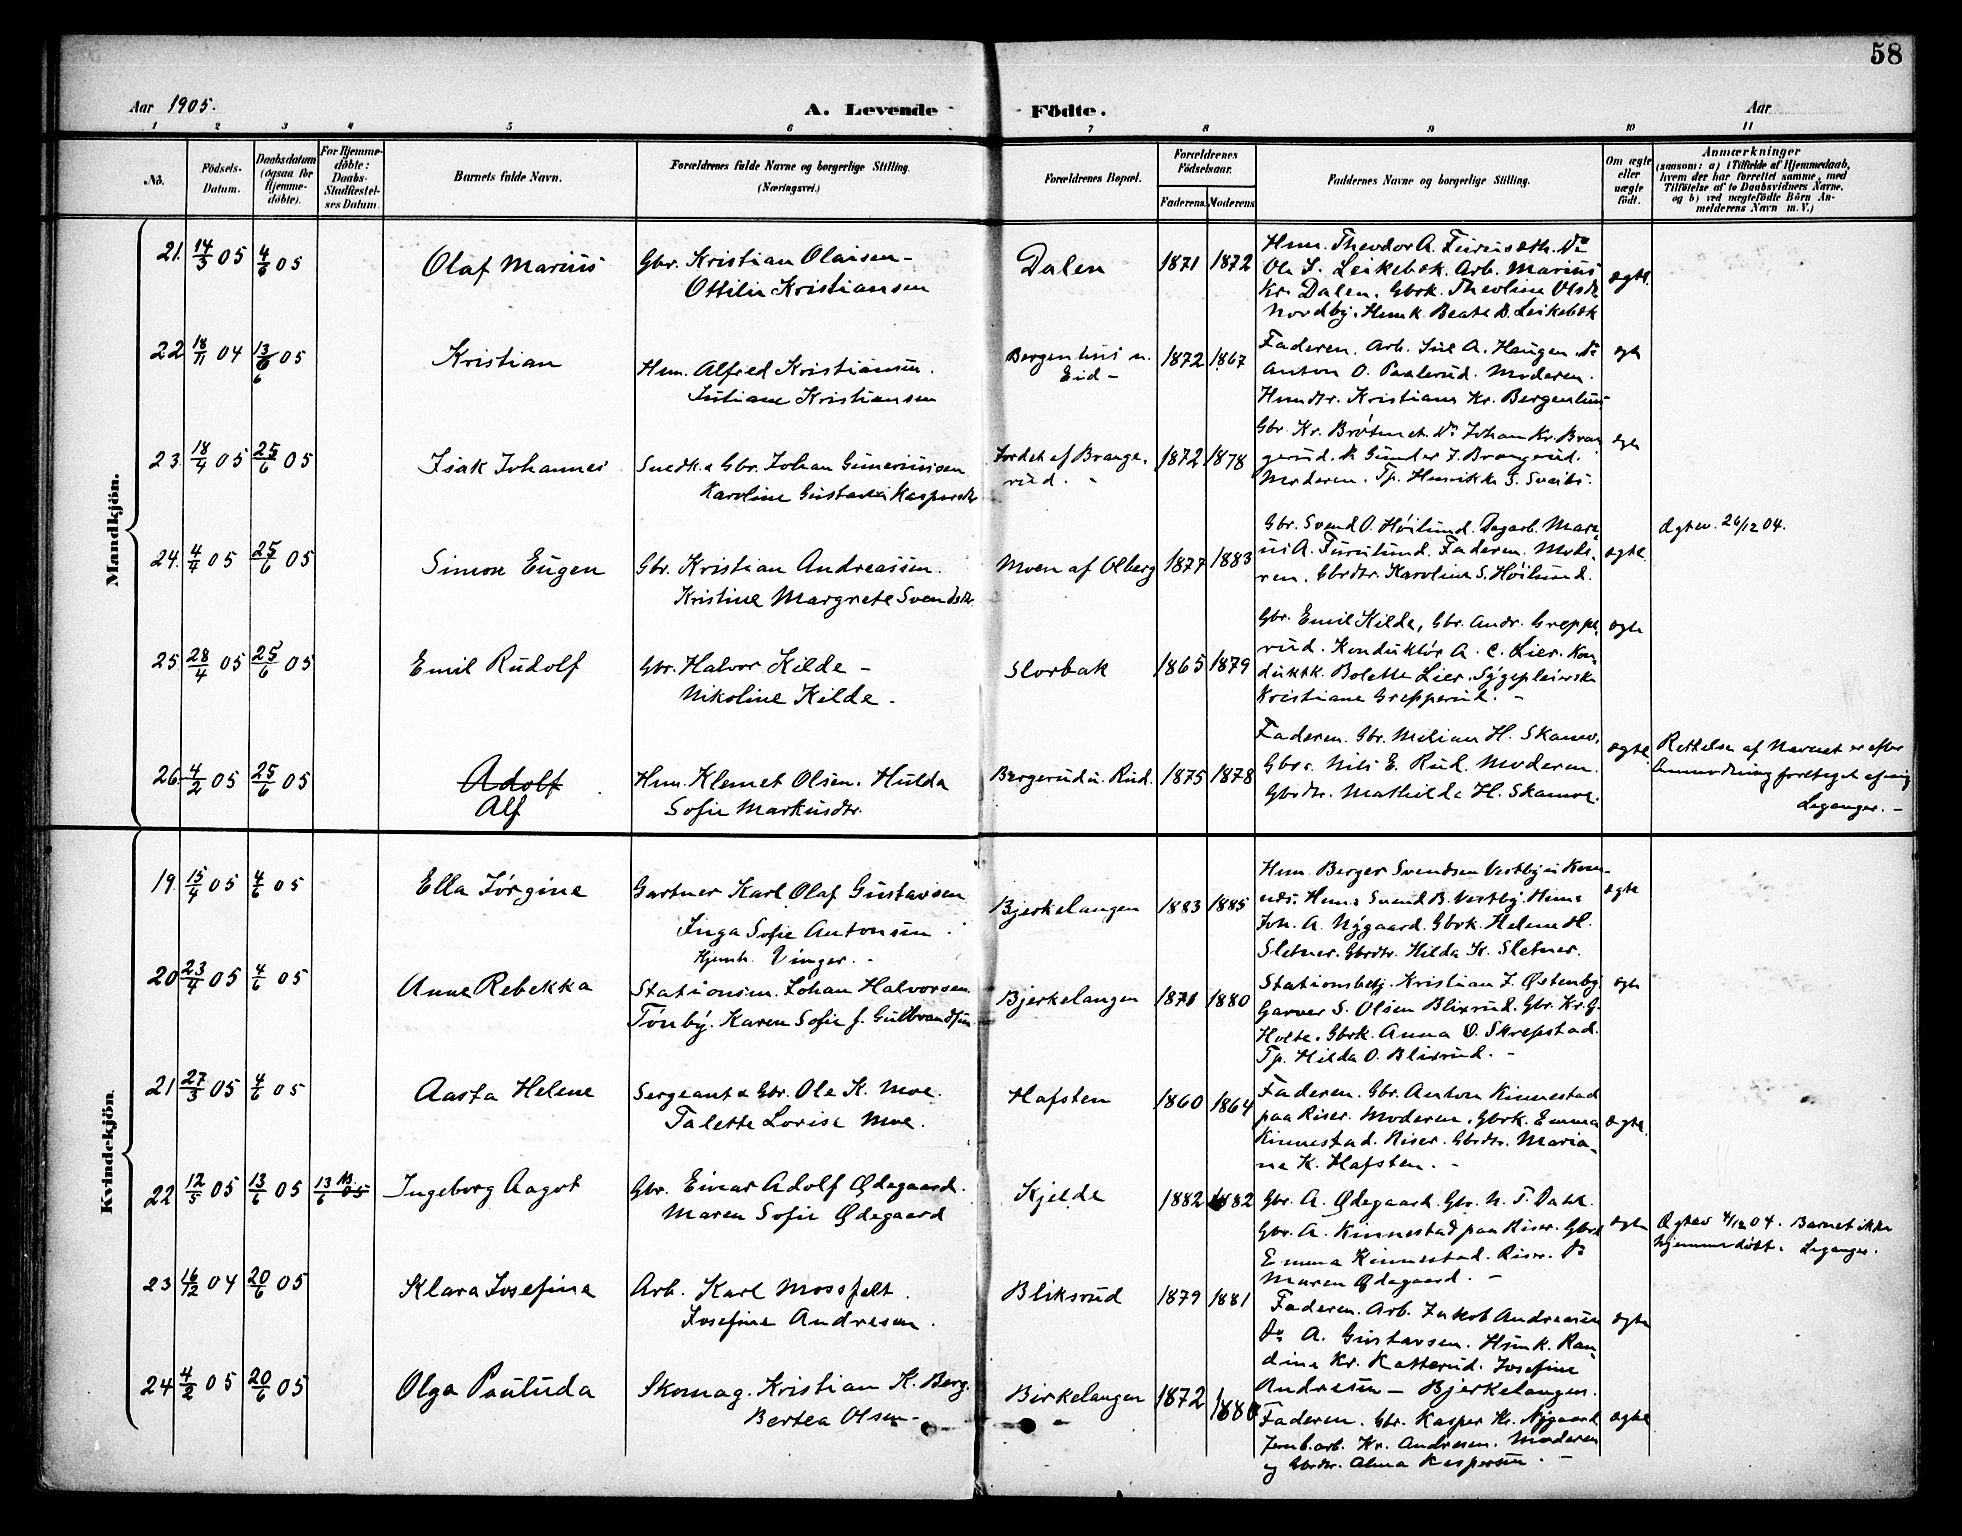 58
Aar 1905.
A. Levende Födte.
Aar
1 2 3 4 5 6 7 8 9 10 11
No.
Födsels-Datum.
Daabsdatum (ogsaa for Hjemme-döbte).
For Hjemme-döbte: Daabs-Stadfæstel-ses Datum.
Barnets fulde Navn.
Forældrenes fulde Navne og borgerlige Stilling. (Næringsvei.)
Forældrenes Bopæl.
Forældrenes Födselsaar.
Faderens. Moderens.
Faddernes Navne og borgerlige Stilling.
Om ægte eller uægte födt.
Anmærkninger
(saasom: a) i Tilfælde af Hjemmedaab,
hvem der har forrettet samme, med
Tilföielse af to Daabsvidners Navne,
og b) ved uægtefödte Börn An-
melderens Navn m. V.)
Mandkjön.
21. 14/3 05 4/6 05 Olaf Marius
Gbr. Kristian Olaisen-
Ottilie Kristiansen
Dalen 1871 1872
Hsm. Theodor A. Furuseth. Do
Ole S. Leikebæk. Arb. Marius
Kr. Dalen. Gbrk. Theoline Olsdr
Nordby. Hsmk. Beate D. Leikebæk
ægte.
22 18/11 04 13/6 05 Kristian
Hsm. Alfred Kristiansen.
Juliane Kristiansen
Bergenhus u. Eid- 1872 1867
Faderen. Arb. Jul A. Haugen. Do
Anton O. Paalerud. Moderen.
Hsmdtr. Kristiane Kr. Bergenhus
ægte
23. 18/4 05 25/6 05 Isak Johannes
Snedk. & Gbr. Johan Guneriussen
Karoline Gustava Kaspersdtr
Jordet af Brange-
rud. 1872 1878
Gbr. Kr. Bråtenet. Do Johan Kr. Bran
gerud. Do Gunder J. Brangerud.
Moderen. Tp. Henrikke S.
ægte
24. 4/4 05 25/6 05 Simon Eugen
Gbr. Kristian Andreassen.
Kristine Margrete Svendsdtr
Moen af Olberg 1877 1883
Gbr. Svend O. Höilund. Dagarb. Mari-
us A. Furulund. Faderen. Mode-
ren. Gbrdtr. Karoline S. Höilund.
ægte
Ægtev. 26/12 04.
25. 28/4 05 25/6 05 Emil Rudolf
Gbr. Halvor Kilde -
Nikoline Kilde -
Slorbak 1865 1879
Gbr. Emil Kilde, Gbr. Andr. Greppe-
rud. Konduktör A. C. Lier. Kon-
duktk. Bolette Lier. Sygepleierske
Kristiane Grepperud. -
ægte
26. 4/2 05 25/6 05 Adolf
Alf
Hsm. Klemet Olsen. Hulda
Sofie Markusdtr.
Bergerud u. Rud. 1875 1878
Faderen. Gbr. Milian H. Skamo,
Gbrs. Nils E. Rud. Moderen.
Gbrdtr. Mathilde H. Skamoe.
ægte
Rettelsen af Navnet er efter
Anmodning foretaget af mig
Leganger. -
Kvindekjön.
19. 15/4 05 4/6 05 Ella Jörgine
Gartner Karl Olaf Gustavsen
Inga Sofie Antonsen
Hjemh. Vinger. -
Bjerkelangen 1883 1885
Hsm. Berger Svendsen Vestby i Kon-
Hsm. Svend B. Vestby. Hsms
Joh. A. Nygaard. Gbrk. Helene H.
Sletner. Gbrdtr. Hilda K. Sletner.
ægte
20 23/4 05 4/6 05 Anne Rebekka
Stationsm. Johan Halvorsen
Tönby. Karen Sofie f. Gulbrandsen
Bjerkelangen 1871 1880
Stationsbetj. Kristian J. Östenby
Garver S. Olsen Blixrud. Gbr. Kr. G.
Holte. Gbrk. Anna O. Skrepstad.
Tp. Hilda O. Blixrud. -
ægte
21 27/3 05 4/6 05 Aasta Helene
Sergeant & Gbr. Ole K. Moe.
Talette Lovise Moe.
Hafsten 1860 1864
Faderen. Gbr. Anton Kinnestad
paa Riser. Moderen. Gbrk. Emma
Kinnestad. Riser. Gbrdtr. Maria-
ne K. Hafsten. -
ægte.
22 12/5 05 13/6 05 13/6 05 Ingeborg Aagot
Gbr. Einar Adolf Ödegaard.
Maren Sofie Ödegaard
Kjelde 1882 1882
Gbr. A. Ödegaard. Gbr. N. T. Dahl
Gbr. A. Kinnestad paa Riser. Gbrk
Emma Kinnestad. Riser. Do
Maren Ödegaard. -
ægte
Ægtev 4/12 04. Barnet ikke
hjemmedöbt. Leganger.
23 16/12 04 20/6 05 Klara Josefine
Arb. Karl Mossfelt.
Josefine Andresen.
Bliksrud 1879 1881
Faderen. Arb. Jakob Andreasen
Do A. Gustavsen. Hsmk. Ran-
dine Kr. Katterud. Josefine
Andresen - Bjerkelangen.
ægte
24 4/2 05 20/6 05 Olga Pauluda
Skomag. Kristian K. Berg.
Bertea Olsen-
Birkelangen 1872 1880
Faderen. Gbr. Kasper Kr. Nygaard
Jernb.arb. Kr. Andresen. Moderen
og Gbrdtr. Alma Kaspersen. -
ægte